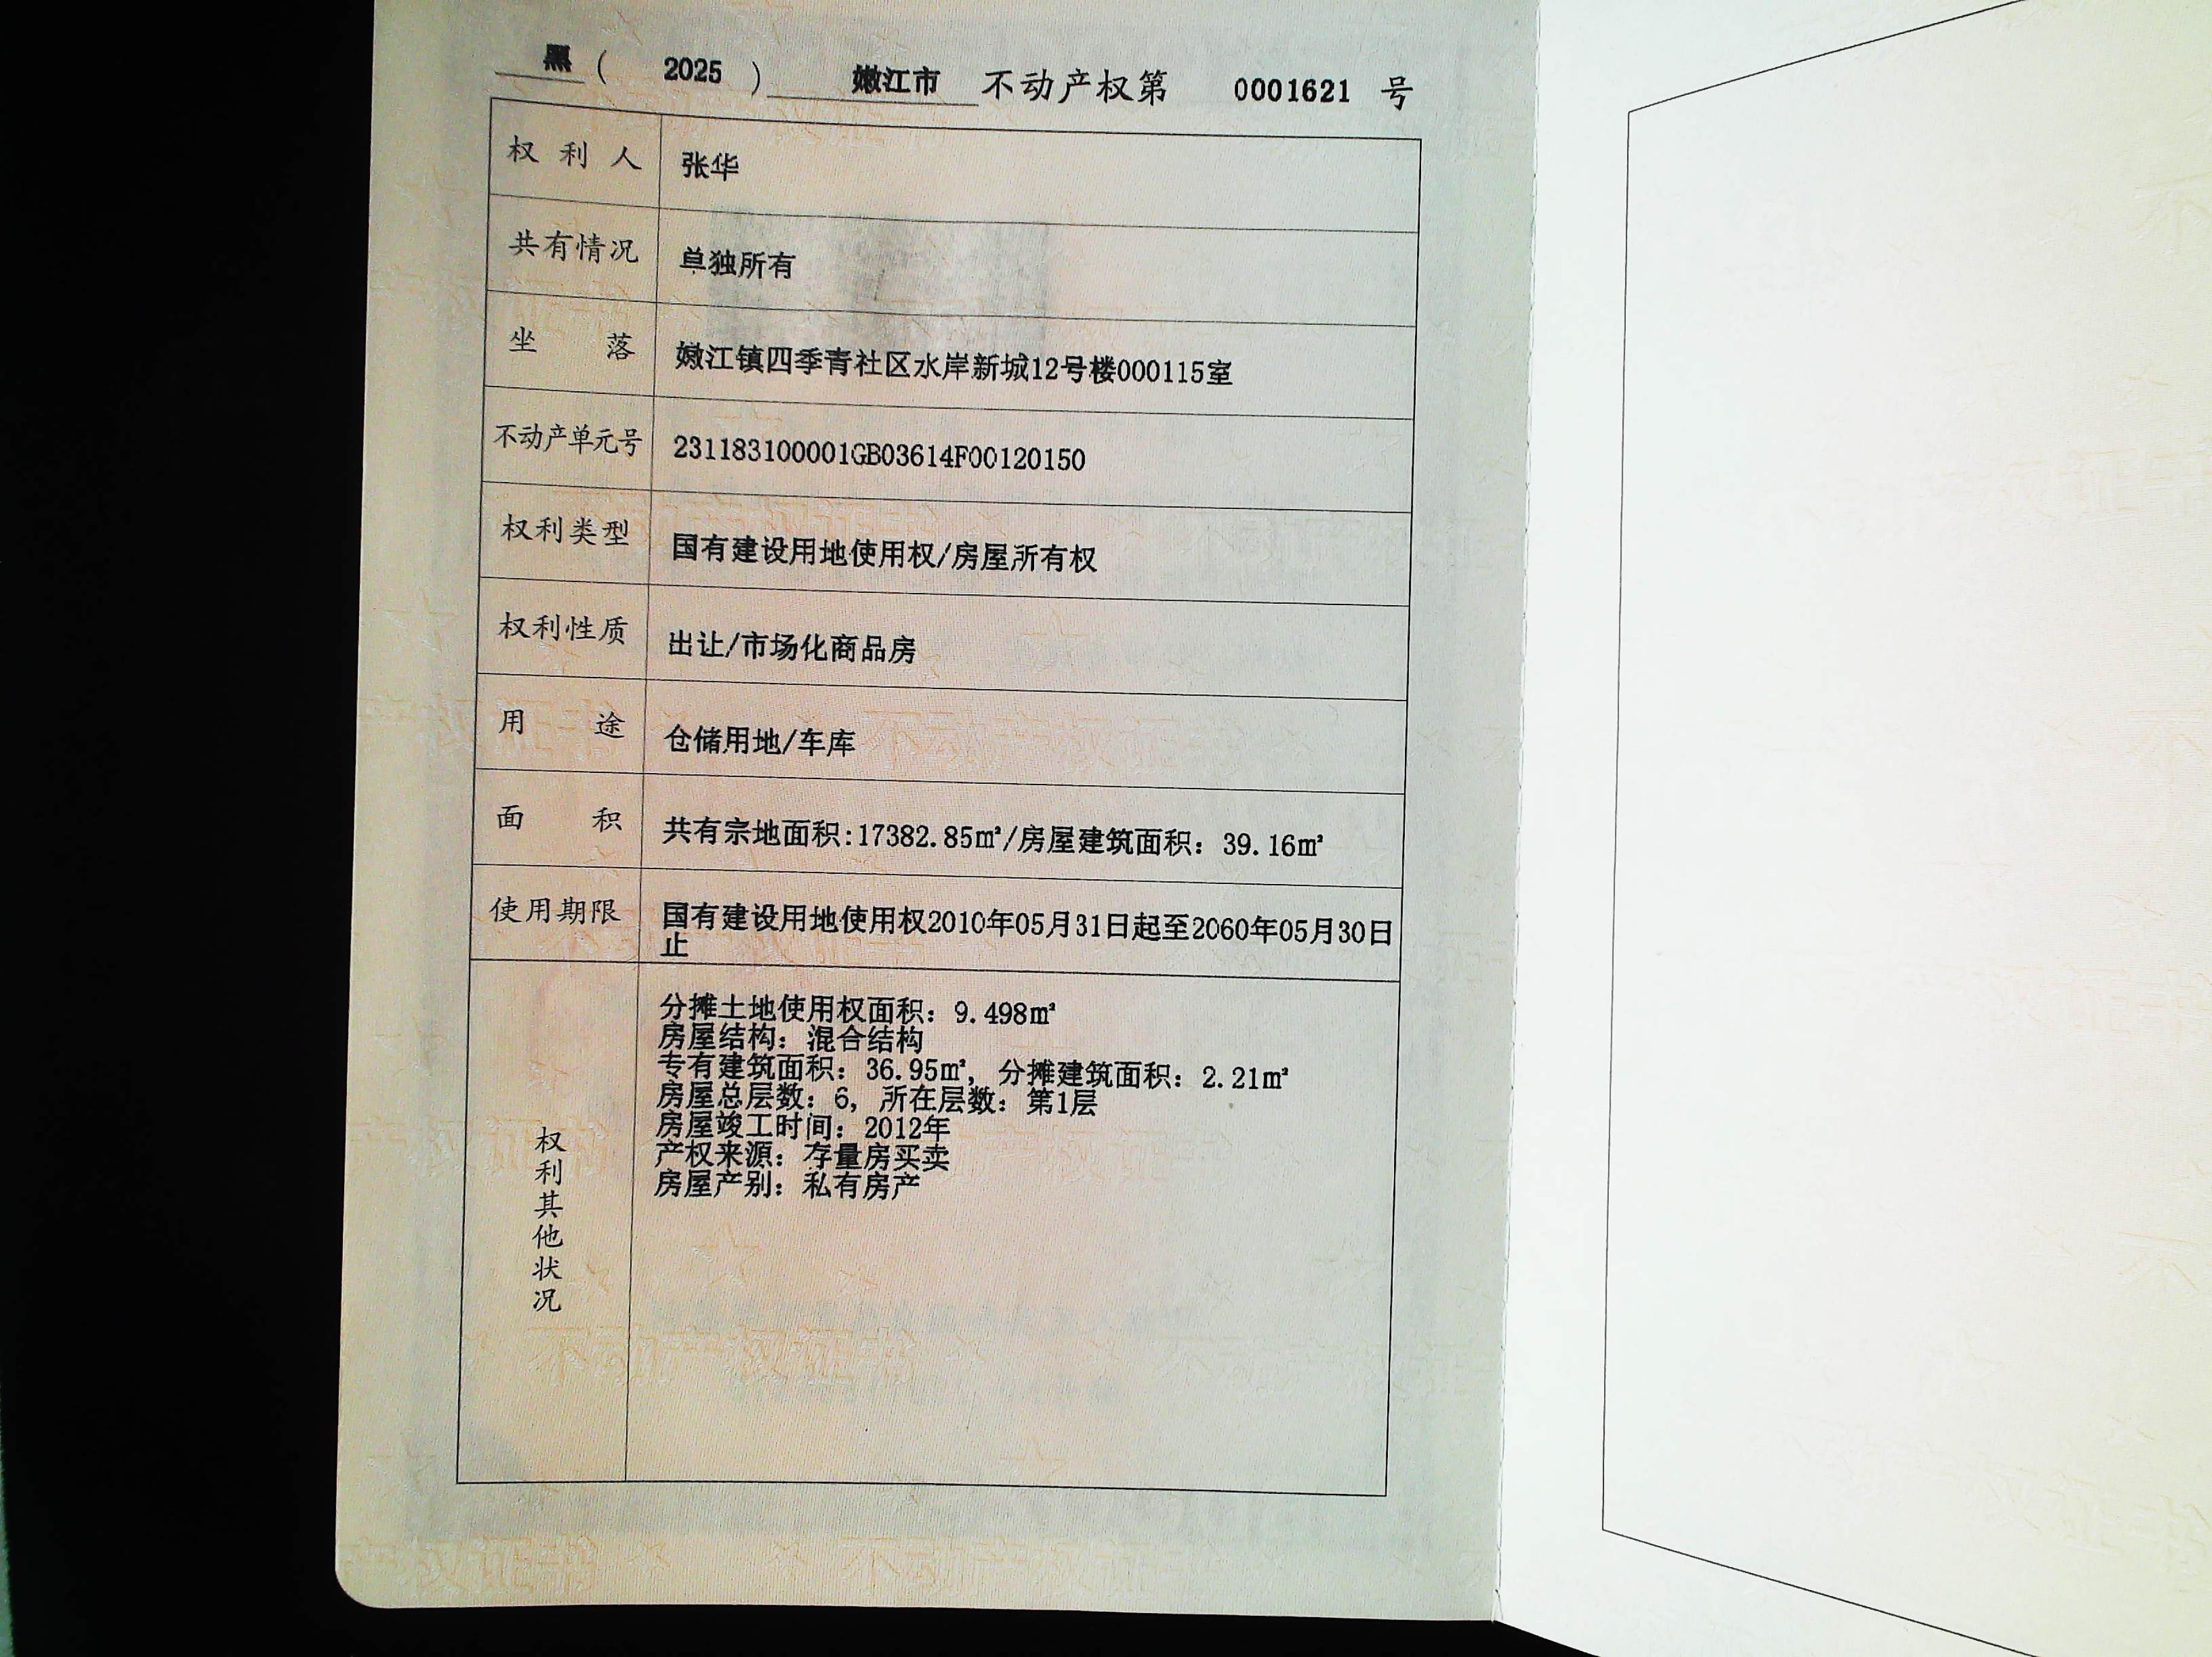 黑 ( 2025 ) 嫩江市 不动产权第 0001621 号
权利人 张华
共有情况 单独所有
坐落 嫩江镇四季青社区水岸新城12号楼000115室
不动产单元号 231183100001GB03614F00120150
权利类型 国有建设用地使用权/房屋所有权
权利性质 出让/市场化商品房
用途 仓储用地/车库
面积 共有宗地面积:17382.85m²/房屋建筑面积：39.16m²
使用期限 国有建设用地使用权2010年05月31日起至2060年05月30日
止
权利其他状况
分摊土地使用权面积：9.498m²
房屋结构：混合结构
专有建筑面积：36.95m²，分摊建筑面积：2.21m²
房屋总层数：6，所在层数：第1层
房屋竣工时间：2012年
产权来源：存量房买卖
房屋产别：私有房产